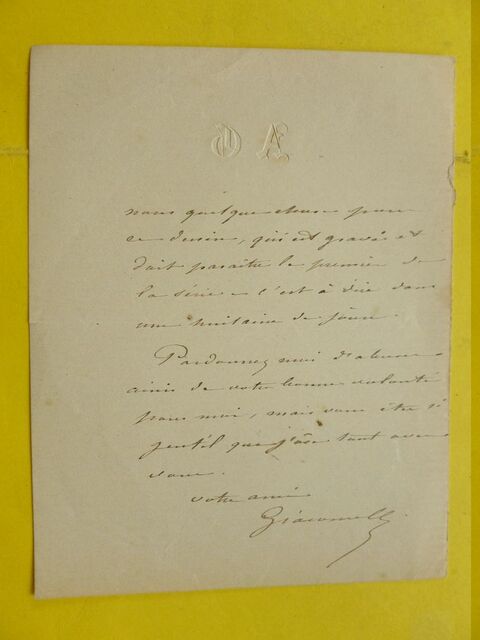 nous quelque chose pour
ce dessin, qui est gravé et
doit paraître le premier de
la série - c'est à dire dans
une huitaine de jours.
Pardonnez moi d'abuser
ainsi de votre bonne volonté
pour moi, mais vous êtes si
gentil que j'ose tout avec
vous.
votre ami
Giacomelli